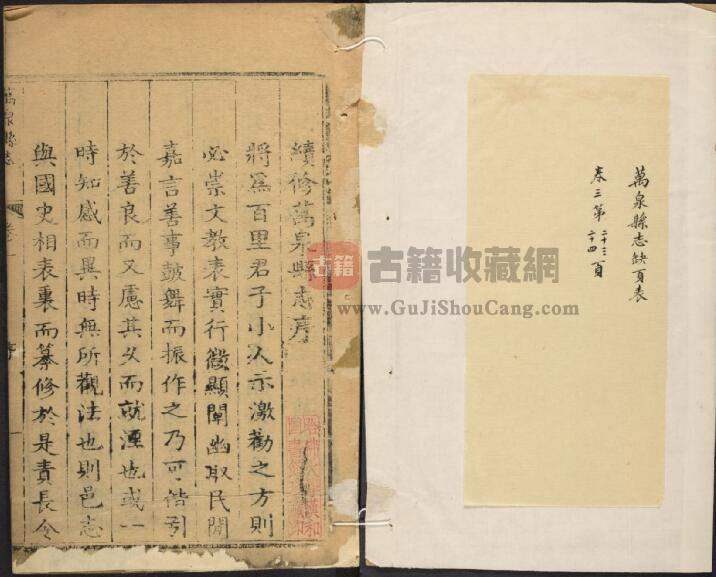 萬泉縣志缺頁表
卷三第二十三二十四頁
續修萬泉縣志序
將爲百里君子小人示激勸之方則
必崇文教表實行微顯闡幽取民閒
嘉言善事鼓舞而振作之乃可偕引
於善良而又慮其久而就湮也或一
時知感而異時無所觀法也則邑志
與國史相表裏而纂修於是責長令
萬泉縣志
卷一
序
古籍
古籍收藏網
www.GuJiShouCang.com